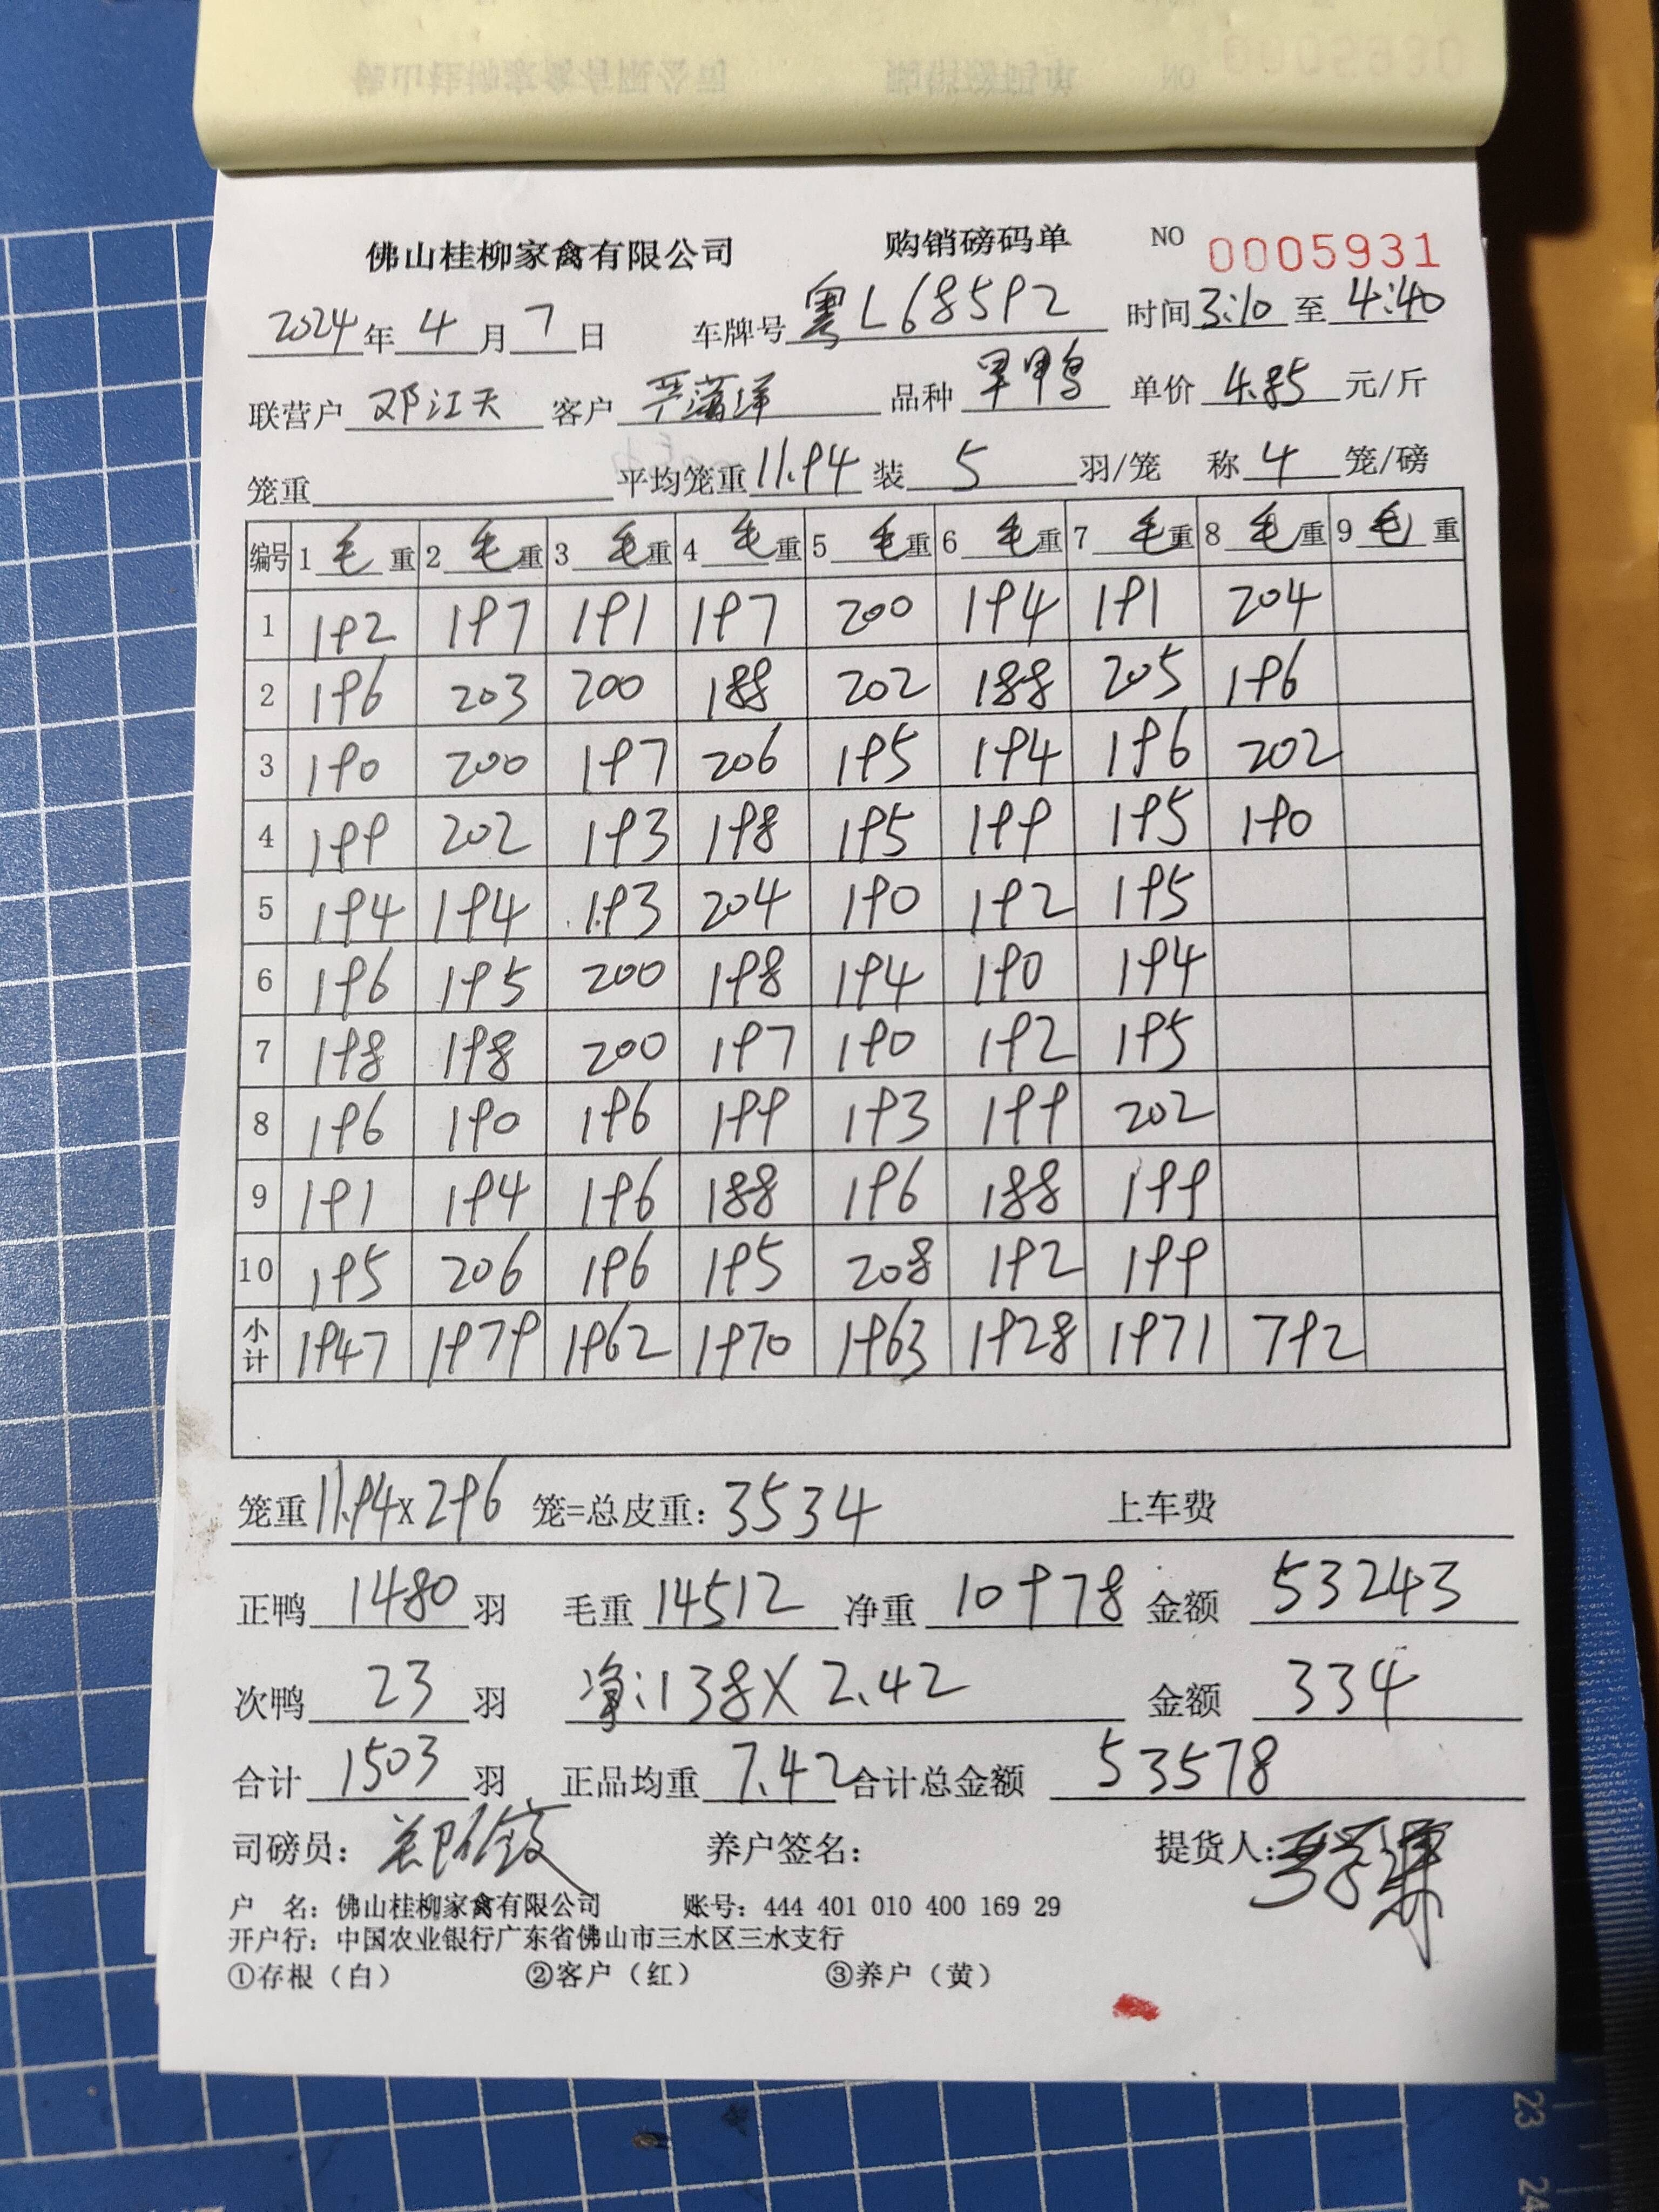 佛山桂柳家禽有限公司 购销磅码单 NO 0005931
2024年4月7日 车牌号粤L68592 时间3:10至4:40
联营户邓江天 客户严蒲洋 品种旱鸭 单价4.85元/斤
笼重 平均笼重11.94装5羽/笼 称4笼/磅
编号 1毛重 2毛重 3毛重 4毛重 5毛重 6毛重 7毛重 8毛重 9毛重
1 192 197 191 197 200 194 191 204
2 196 203 200 188 202 188 205 196
3 190 200 197 206 195 194 196 202
4 199 202 193 198 195 199 195 190
5 194 194 193 204 190 192 195
6 196 195 200 198 194 190 194
7 198 198 200 197 190 192 195
8 196 190 196 199 193 199 202
9 191 194 196 188 196 188 199
10 195 206 196 195 208 192 199
小计 1947 1979 1962 1970 1963 1928 1971 792
笼重11.94x296 笼=总皮重:3534 上车费
正鸭1480羽 毛重14512 净重10978 金额53243
次鸭23羽 净:138X2.42 金额334
合计1503羽 正品均重7.42合计总金额53578
司磅员: 养户签名: 提货人:
户 名: 佛山桂柳家禽有限公司 账号: 444 401 010 400 169 29
开户行: 中国农业银行广东省佛山市三水区三水支行
①存根(白) ②客户(红) ③养户(黄)
23
24